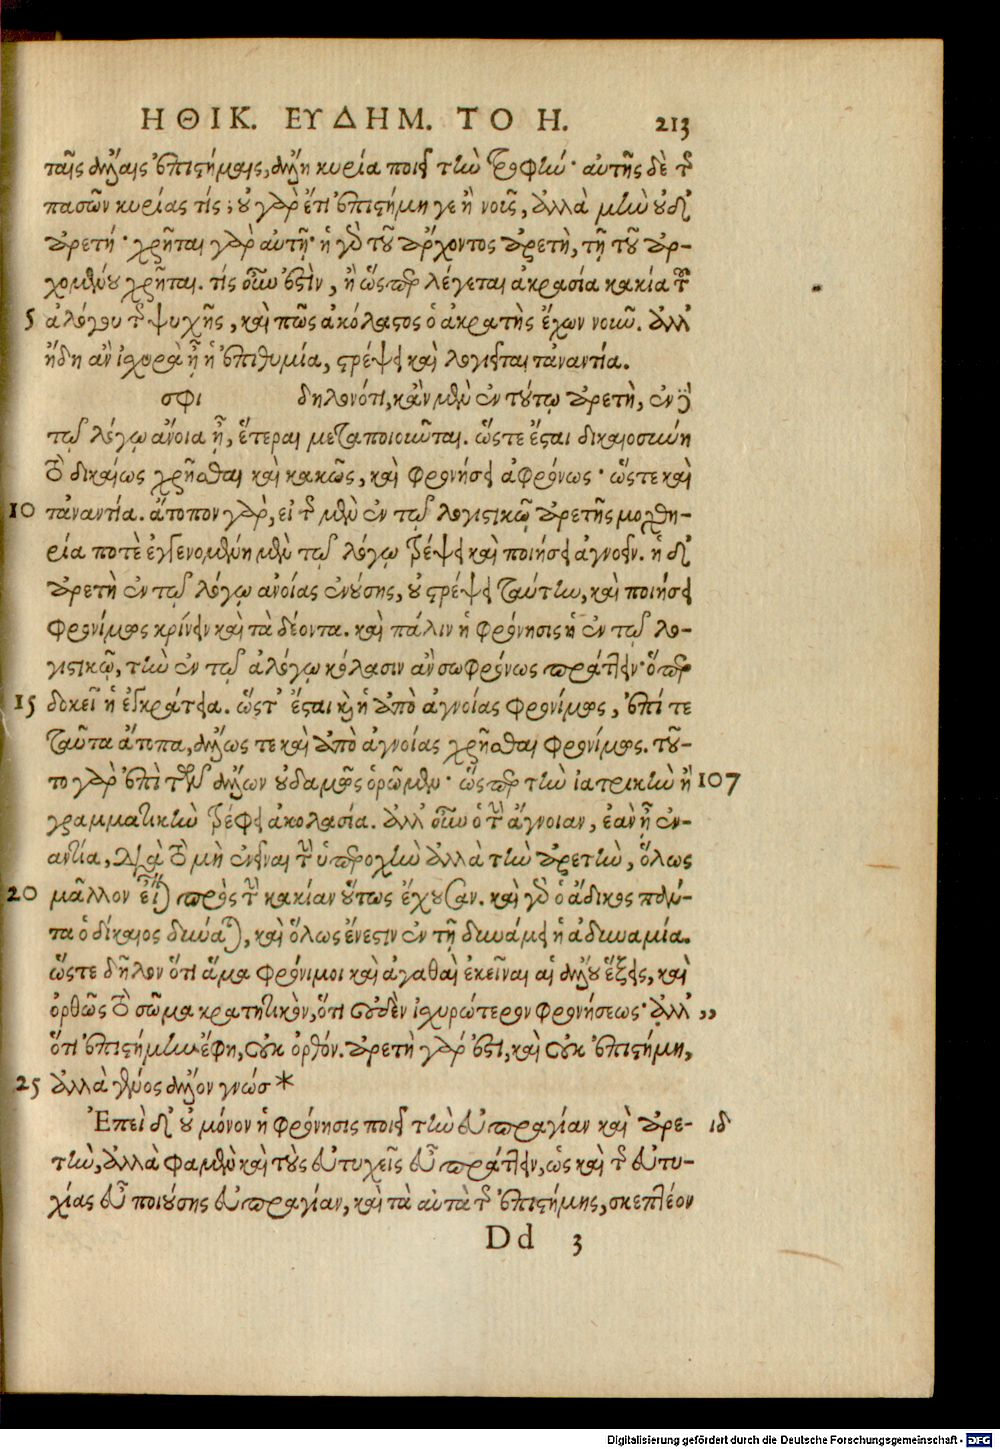 ΗΘΙΚ. ΕΥΔΗΜ. ΤΟ Η. 213
ταῖς ἄλλαις ἐπιστήμαις, ἄλλη κυρία ποιεῖ τὴν στροφήν· αὐτῆς δὲ τῆς
πασῶν κυρίας τίς; οὐ γὰρ ἔτι ἐπιστήμη γε ἢ νοῦς, ἀλλὰ μὴν οὐδ'
ἀρετή· χρῆται γὰρ αὐτῇ· ἡ γὰρ τοῦ ἄρχοντος ἀρετὴ, τῇ τοῦ ἀρ-
χομένου χρῆται. τίς οὖν ἐστὶν, ἢ ὥσπερ λέγεται ἀκρασία κακία τοῦ
5 ἀλόγου τῆς ψυχῆς, καὶ πῶς ἀκόλαστος ὁ ἀκρατὴς ἔχων νοῦν. ἀλλ'
ἤδη ἂν ἰσχυρὰ ᾖ ἡ ἐπιθυμία, στρέψει καὶ λογιεῖται τἀναντία.
σφι δηλονότι, κἂν μὲν ἐν τούτῳ ἀρετὴ, ἐν δὲ
τῷ λόγῳ ἄνοια ᾖ, ἕτεραι μεταποιοῦνται. ὥστε ἔσται δικαιοσύνη
τὸ δικαίως χρῆσθαι καὶ κακῶς, καὶ φρονήσει ἀφρόνως· ὥστε καὶ
10 τἀναντία. ἄτοπον γὰρ, εἰ τὴν μὲν ἐν τῷ λογιστικῷ ἀρετῆς μοχθη-
ρία ποτὲ ἐγγενομένη μὲν τῷ λόγῳ στρέψει καὶ ποιήσει ἀγνοεῖν. ἡ δ'
ἀρετὴ ἐν τῷ λόγῳ ἀνοίας ἐνούσης, οὐ στρέψει ταύτην, καὶ ποιήσει
φρονίμως κρίνειν καὶ τὰ δέοντα. καὶ πάλιν ἡ φρόνησις ἡ ἐν τῷ λο-
γιστικῷ, τὴν ἐν τῷ ἀλόγῳ κόλασιν ἂν σωφρόνως πράττειν· ὅπερ
15 δοκεῖ ἡ ἐγκράτεια. ὥστ' ἔσται καὶ ἡ ἀπὸ ἀγνοίας φρονίμως, ἐπί τε
ταῦτα ἄτοπα, ἄλλως τε καὶ ἀπὸ ἀγνοίας χρῆσθαι φρονίμως. τοῦ-
το γὰρ ἐπὶ τῶν ἄλλων οὐδαμῶς ὁρῶμεν· ὥσπερ τὴν ἰατρικὴν ἢ 107
γραμματικὴν στρέφει ἀκολασία. ἀλλ' οὖν οὐ τὴν ἄγνοιαν, ἐὰν ᾖ ἐν-
αντία, διὰ τὸ μὴ ἐνεῖναι τὴν ὑπεροχὴν ἀλλὰ τὴν ἀρετὴν, ὅλως
20 μᾶλλον εἶναι πρὸς τὴν κακίαν οὕτως ἔχουσαν. καὶ γὰρ ὁ ἄδικος πάν-
τα ὁ δίκαιος δύναται, καὶ ὅλως ἔνεστιν ἐν τῇ δυνάμει ἡ ἀδυναμία.
ὥστε δῆλον ὅτι ἅμα φρόνιμοι καὶ ἀγαθαὶ ἐκεῖναι αἱ ἄλλου ἕξεις, καὶ
ὀρθῶς τὸ σῶμα κρατητικὸν, ὅτι οὐδὲν ἰσχυρότερον φρονήσεως· ἀλλ' „
ὅτι ἐπιστήμην ἔφη, οὐκ ὀρθόν. ἀρετὴ γάρ ἐστι, καὶ οὐκ ἐπιστήμη,
25 ἀλλὰ γένος ἄλλον γνώσ *
Ἐπεὶ δ' οὐ μόνον ἡ φρόνησις ποιεῖ τὴν εὐπραγίαν καὶ ἀρε- ιδ
τὴν, ἀλλὰ φαμὲν καὶ τοὺς εὐτυχεῖς εὖ πράττειν, ὡς καὶ τῆς εὐτυ-
χίας εὖ ποιούσης εὐπραγίαν, καὶ τὰ αὐτὰ τῆς ἐπιστήμης, σκεπτέον
Dd 3
Digitalisierung gefördert durch die Deutsche Forschungsgemeinschaft - DFG